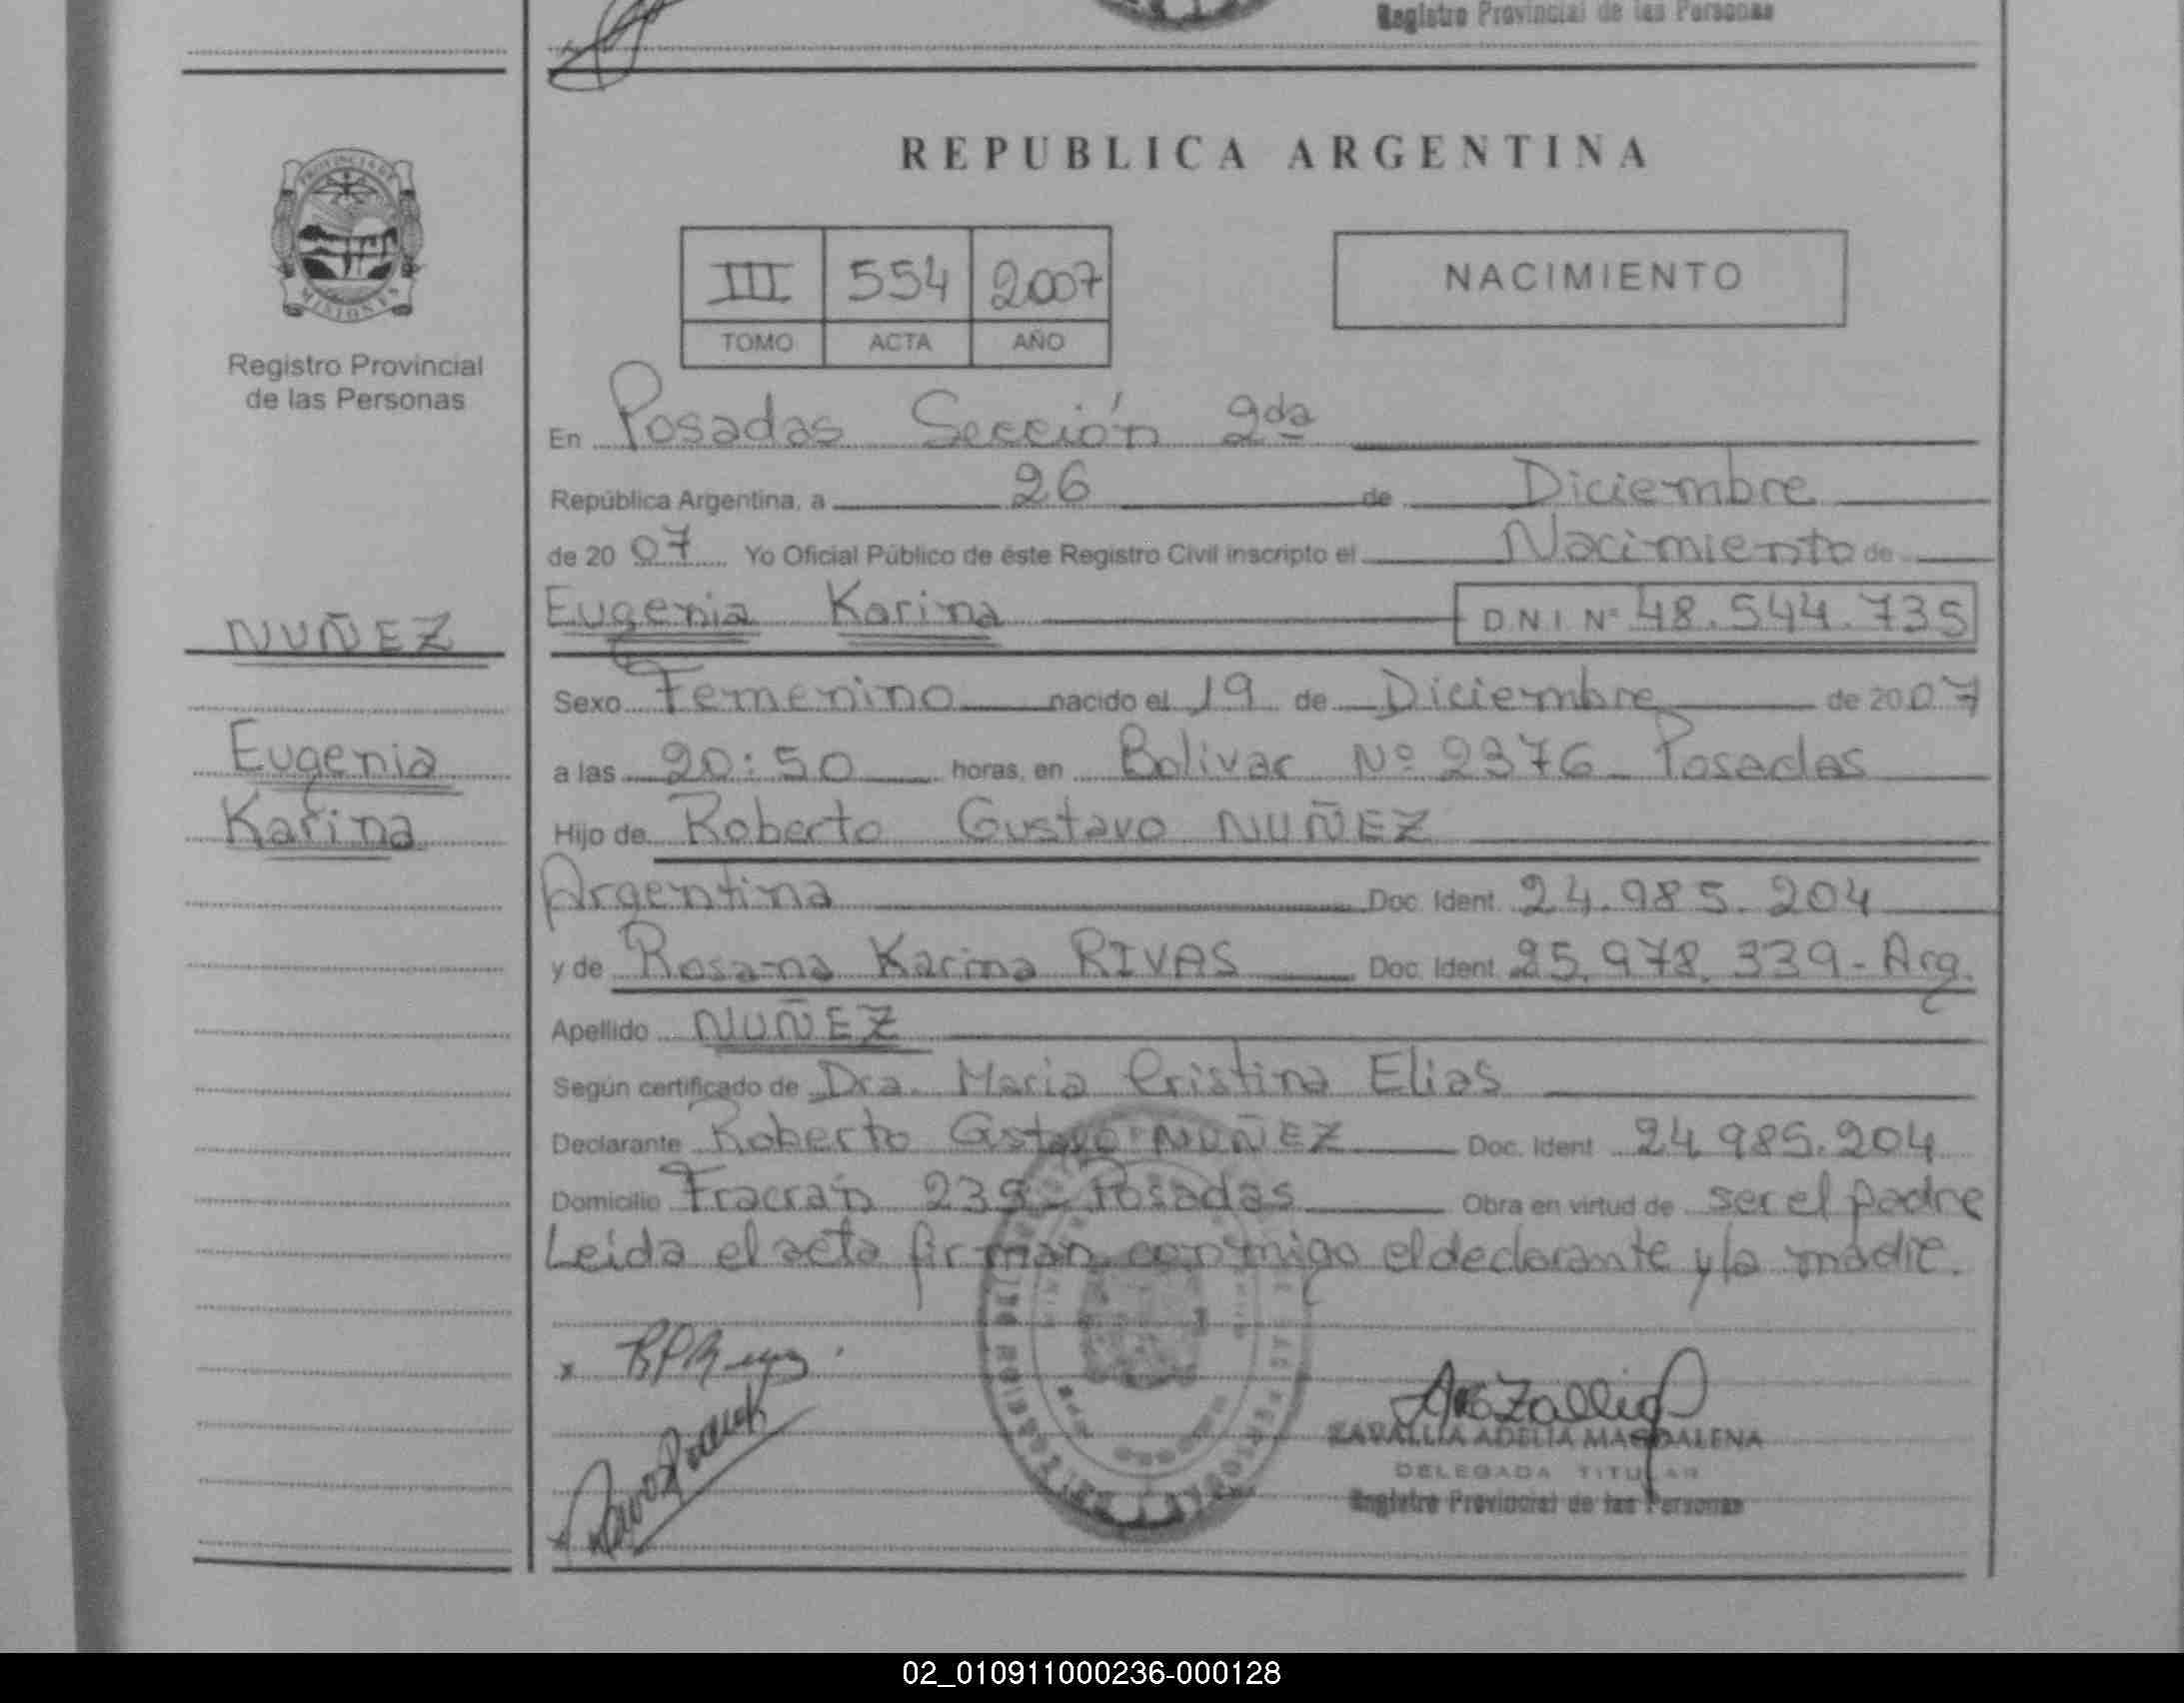 Registro Provincial de las Personas
PROVINCIA DE
MISIONES
Registro Provincial
de las Personas
NUÑEZ
Eugenia
Karina
REPUBLICA ARGENTINA
III 554 2007
TOMO ACTA AÑO
NACIMIENTO
En Posadas Sección 2da
República Argentina, a 26 de Diciembre
de 20 07 Yo Oficial Público de éste Registro Civil inscripto el Nacimiento de
Eugenia Karina DNI Nº 48.544.735
Sexo Femenino nacido el 19 de Diciembre de 2007
a las 20:50 horas, en Bolivar Nº 2376 - Posadas
Hijo de Roberto Gustavo NUÑEZ
Argentina Doc. Ident. 24.985.204
y de Rosana Karina RIVAS Doc. Ident. 25.978.339 - Arg.
Apellido NUÑEZ
Según certificado de Dra. Maria Cristina Elias
Declarante Roberto Gstavo NUÑEZ Doc. Ident. 24.985.204
Domicilio Fracrán 239 - Posadas Obra en virtud de ser el padre
Leida el acta firman conmigo el declarante y la madre.
ZARALLIA ADELIA MAGDALENA
DELEGADA TITULAR
Registro Provincial de las Personas
02_010911000236-000128